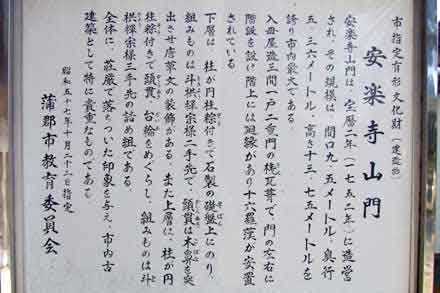 市指定有形文化財（建造物）
安楽寺山門
安楽寺山門は、宝暦二年（一七五二年）に造営
され、その規模は、間口九・五メートル、奥行
五・三六メートル、高さ十三・七五メートルを
誇り市内最大である。
入母屋造三間一戸二重門の桟瓦葺で、門の左右に
階段を設け階上には廻縁があり十六羅漢が安置
されている。
下層は、柱が円柱粽付きで石製の礎盤上にのり、
組みものは斗栱禅宗様二手先で、頭貫は木鼻を突
出させ唐草文の装飾がある。また上層は、柱が円
柱粽付きで頭貫、台輪をめぐらし、組みものは斗
栱禅宗様三手先の詰め組である。
全体に、荘厳で落ちついた印象を与え、市内古
建築として特に貴重なものである。
昭和五十七年十月二十二日指定
蒲郡市教育委員会